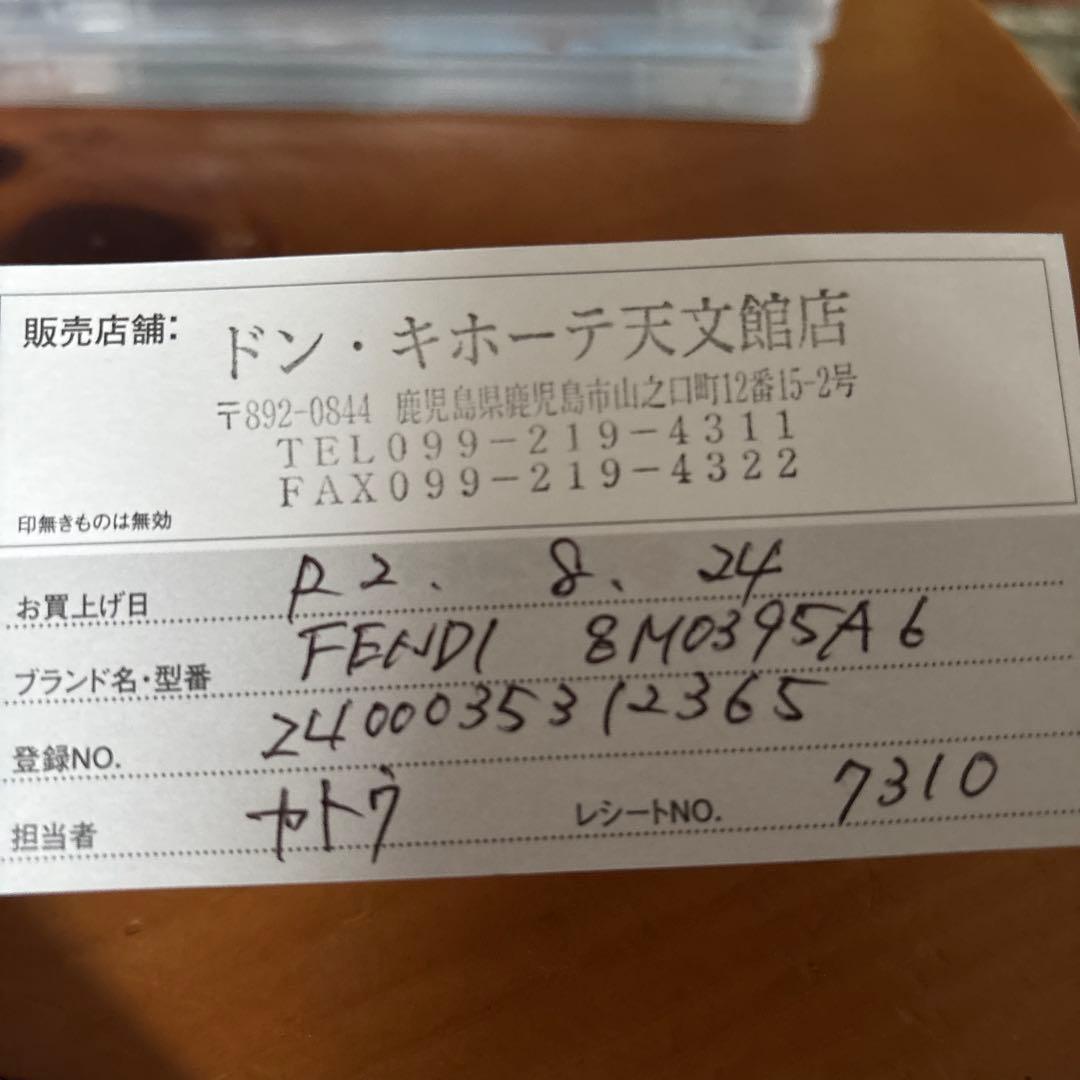 販売店舗: ドン・キホーテ天文館店
〒892-0844 鹿児島県鹿児島市山之口町12番15-2号
TEL099-219-4311
FAX099-219-4322
印無きものは無効
お買上げ日 R2. 8. 24
ブランド名・型番 FENDI 8M0395A6
登録NO. 2400035312365
担当者 カトウ レシートNO. 7310